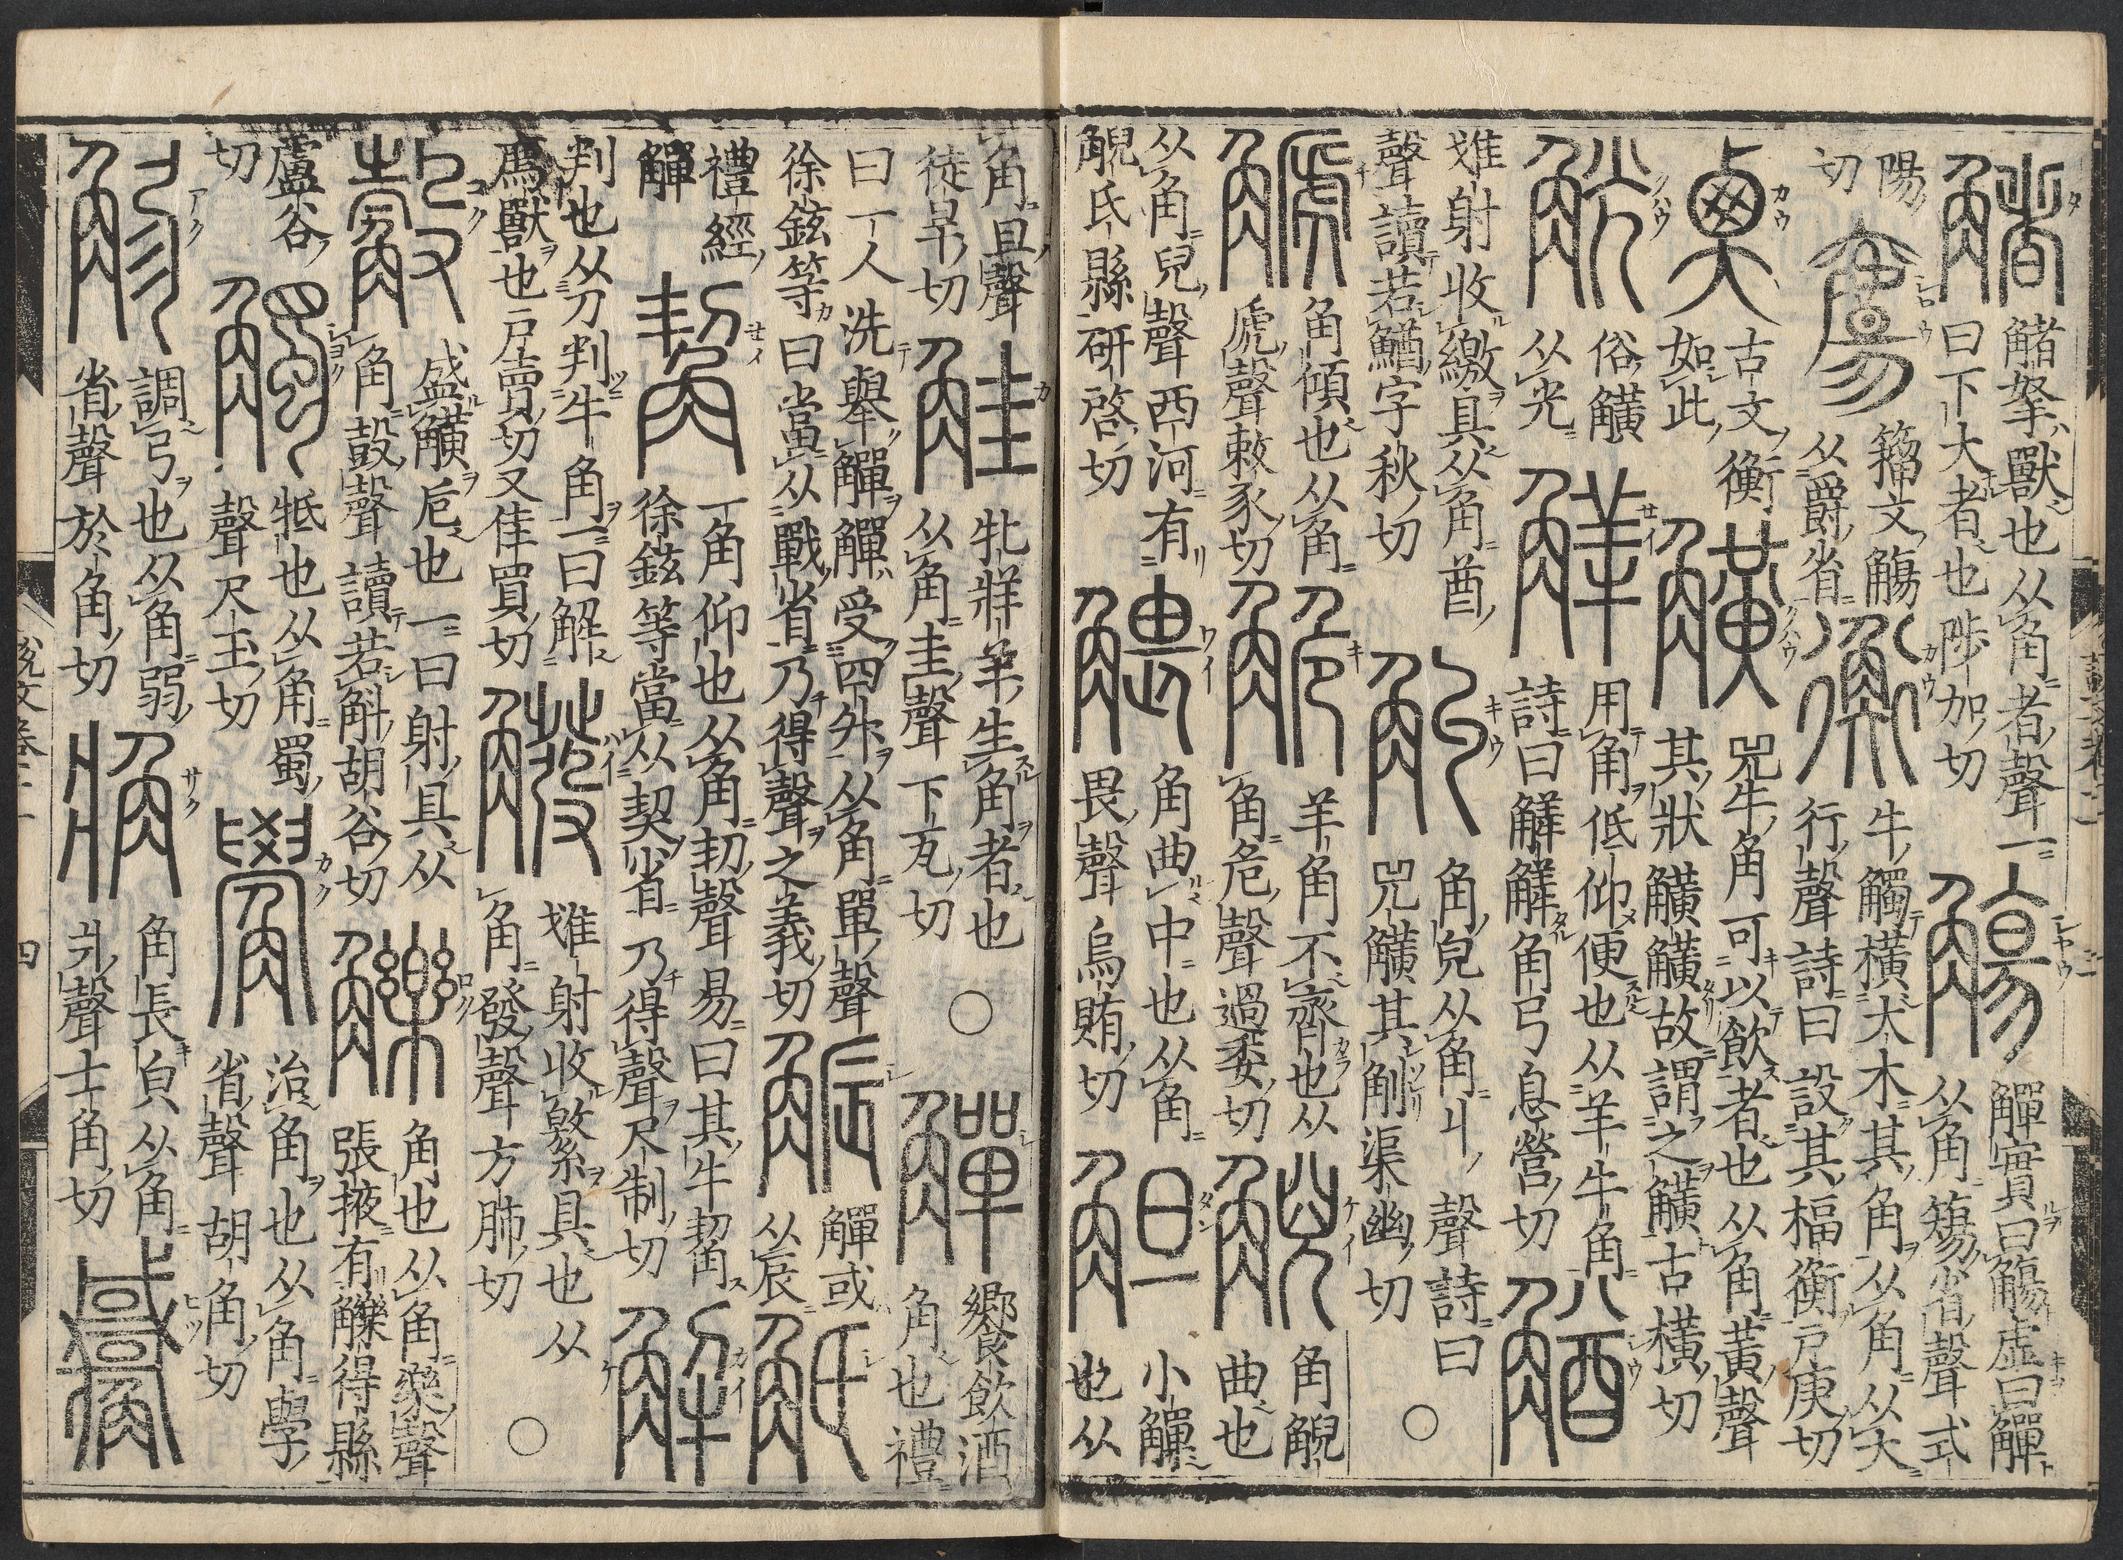 觰
觰拏獸也从角者聲一
曰下大者也陟加切
觴
觶實曰觴虛曰觶
从角𥏻省聲式
陽
切
籒文觴
从爵省
衡
牛觸橫大木其角从角从大
行聲詩曰設其楅衡戸庚切
古文衡
如此
觵
兕牛角可以飲者也从角黃聲
其狀觵觵故謂之觵古橫切
觥
俗觵
从光
觲
用角低仰便也从羊牛角
詩曰觲觲角弓息營切
雉射收繳具从角酋
聲讀若鰌字秋切
觓
角皃从角丩聲詩曰
兕觵其觓渠幽切
○
角傾也从角
虒聲敕豕切
觤
羊角不齊也从
角危聲過委切
觬
角觬
曲也
从角兒聲西河有
觬氏縣研啓切
角曲中也从角
畏聲烏賄切
觛
小觶
也从
角旦聲
徒旱切
觟
牝牂羊生角者也
从角圭聲下瓦切
○
觶
饗飲酒
角也禮
曰一人洗舉觶觶受四升从角單聲
徐鉉等曰當从戰省乃得聲之義切
觶或
从辰
觗
禮經
觶
觢
一角仰也从角㓞聲易曰其牛觢
徐鉉等當从契省乃得聲尺制切
解
判也从刀判牛角一曰解
廌獸也戸賣切又佳買切
雉射收繁具也从
角發聲方肺切
○
觳
盛觵巵也一曰射具从
角㱿聲讀若斛胡谷切
觻
角也从角樂聲
張掖有觻得縣
盧谷
切
觸
牴也从角蜀
聲尺玉切
觷
治角也从角學
省聲胡角切
調弓也从角弱
省聲於角切
角長皃从角
爿聲士角切
四